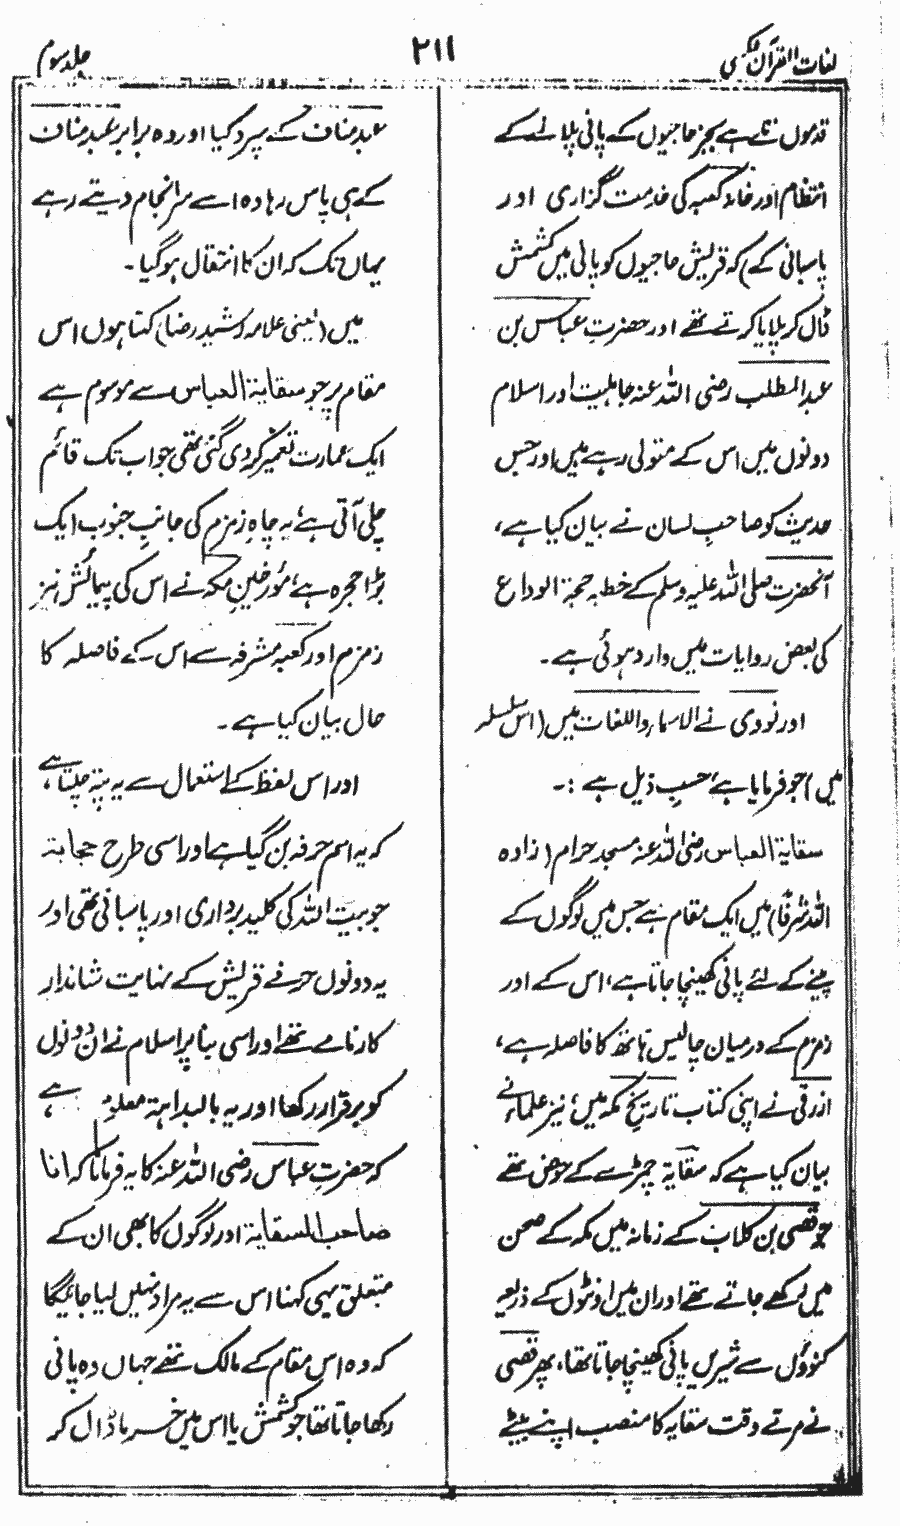 لغات القرآن
٢١١
جلد سوم
قدموں تلے ہے بجز حاجیوں کے پانی پلانے کے
انتظام اور خانہ کعبہ کی خدمت گزاری اور
پاسبانی کے) کہ قریش حاجیوں کو پانی میں کشمش
ڈال کر پلایا کرتے تھے اور حضرت عباس بن
عبدالمطلب رضی اللہ عنہ جاہلیت اور اسلام
دونوں میں اس کے متولی رہے ہیں اور جس
حدیث کو صاحب لسان نے بیان کیا ہے،
آنحضرت صلی اللہ علیہ وسلم کے خطبہ حجۃ الوداع
کی بعض روایات میں وارد ہوئی ہے۔
اور نووی نے الاسماء واللغات میں (اس سلسلہ
میں) جو فرمایا ہے، حسب ذیل ہے :۔
سقایۃ العباس رضی اللہ عنہ مسجد حرام (زادہ
اللہ شرفًا) میں ایک مقام ہے جس میں لوگوں کے
پینے کے لئے پانی کھینچا جاتا ہے، اس کے اور
زمزم کے درمیان چالیس ہاتھ کا فاصلہ ہے،
ازرقی نے اپنی کتاب تاریخ مکہ میں، نیز علماء نے
بیان کیا ہے کہ سقایۃ چمڑے کے حوض تھے
جو قصی بن کلاب کے زمانہ میں مکہ کے صحن
میں رکھے جاتے تھے اور ان میں اونٹوں کے ذریعہ
کنوؤں سے شیریں پانی کھینچا جاتا تھا، پھر قصی
نے مرتے وقت سقایہ کا منصب اپنے بیٹے
عبد مناف کے سپرد کیا اور وہ برابر عبد مناف
کے ہی پاس رہا وہ اسے سرانجام دیتے رہے
یہاں تک کہ ان کا انتقال ہوگیا۔
میں (یعنی علامہ رشید رضا) کہتا ہوں اس
مقام پر جو سقایۃ العباس سے موسوم ہے
ایک عمارت تعمیر کر دی گئی تھی جو اب تک قائم
چلی آتی ہے، یہ چاہِ زمزم کی جانبِ جنوب ایک
بڑا حجرہ ہے، مؤرخینِ مکہ نے اس کی پیمائش نیز
زمزم اور کعبہ مشرفہ سے اس کے فاصلہ کا
حال بیان کیا ہے۔
اور اس لفظ کے استعمال سے یہ پتہ چلتا ہے،
کہ یہ اسم حرفہ بن گیا ہے اور اسی طرح حجابۃ
جو بیت اللہ کی کلید برداری اور پاسبانی تھی اور
یہ دونوں حرفے قریش کے نہایت شاندار
کارنامے تھے اور اسی بنا پر اسلام نے ان دونوں
کو برقرار رکھا اور یہ بالبداہۃ معلوم ہے،
کہ حضرت عباس رضی اللہ عنہ کا یہ فرمانا کہ انا
صاحب السقایۃ اور لوگوں کا بھی ان کے
متعلق یہی کہنا اس سے یہ مراد نہیں لیا جائیگا
کہ وہ اس مقام کے مالک تھے جہاں وہ پانی
رکھا جاتا تھا جو کشمش یا اس میں خرما ڈال کر